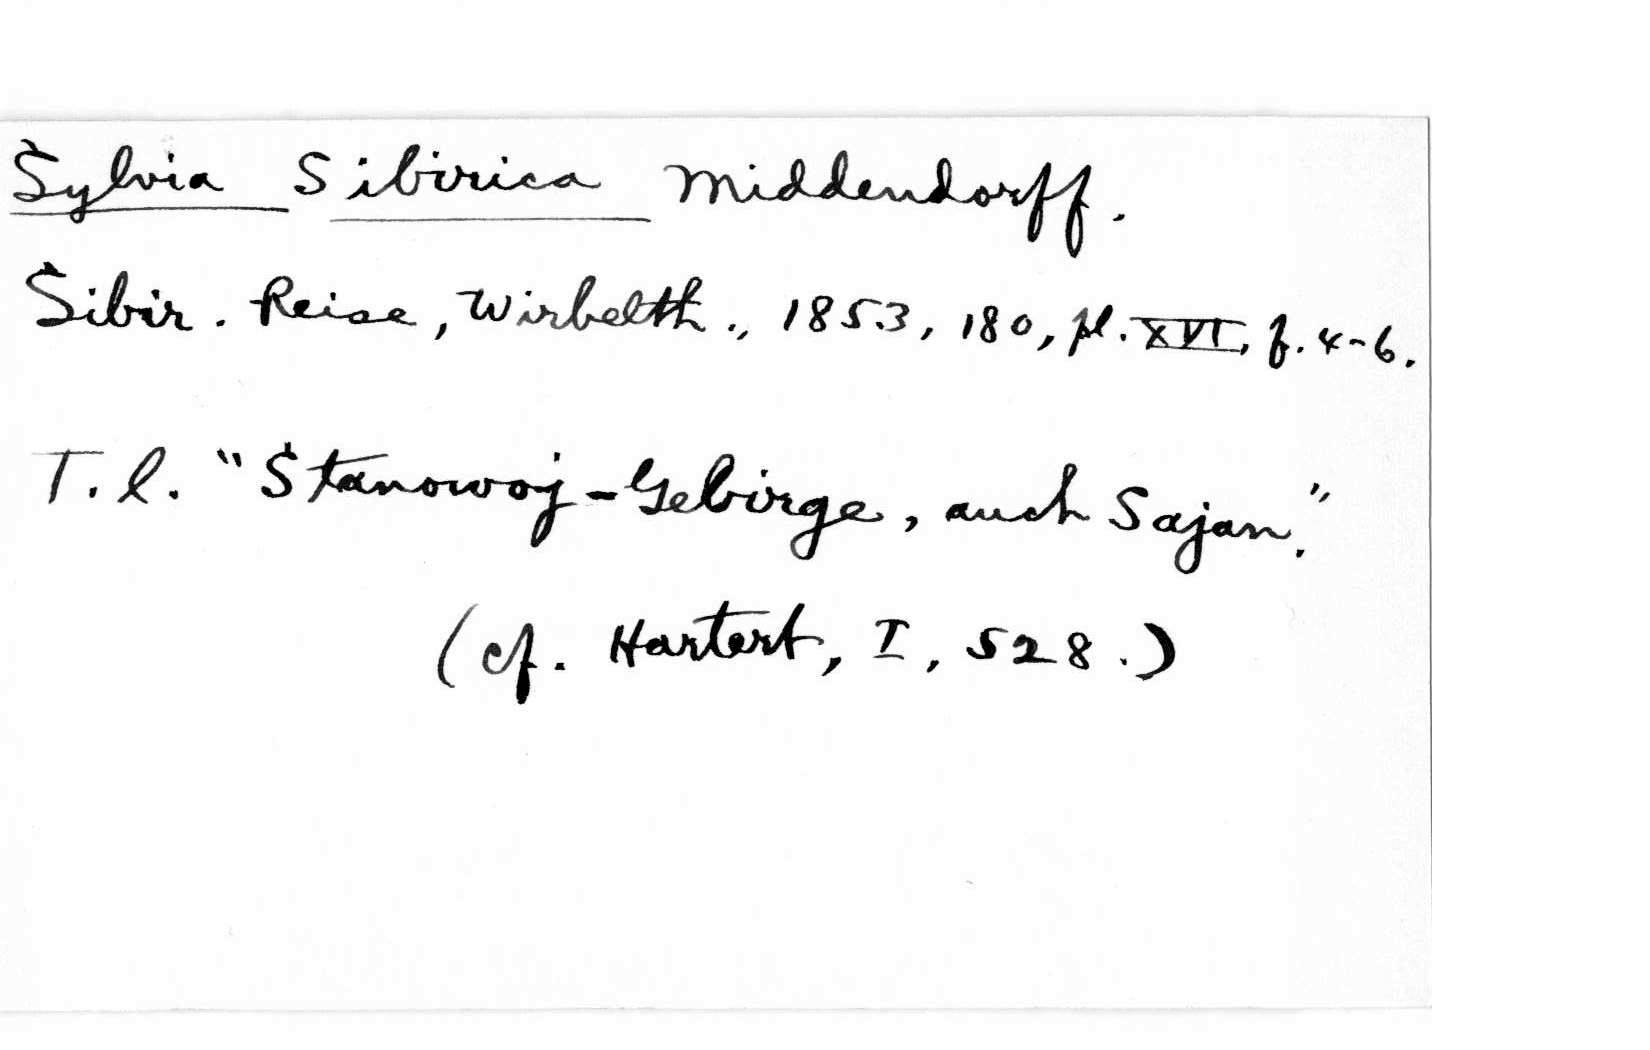 Sylvia Sibirica Middendorff.
Sibir. Reise, Wirbelth., 1853, 180, pl. XVI, f. 4-6.
T. l. "Stanowoj-Gebirge, auch Sajan."
(cf. Hartert, I, 528.)